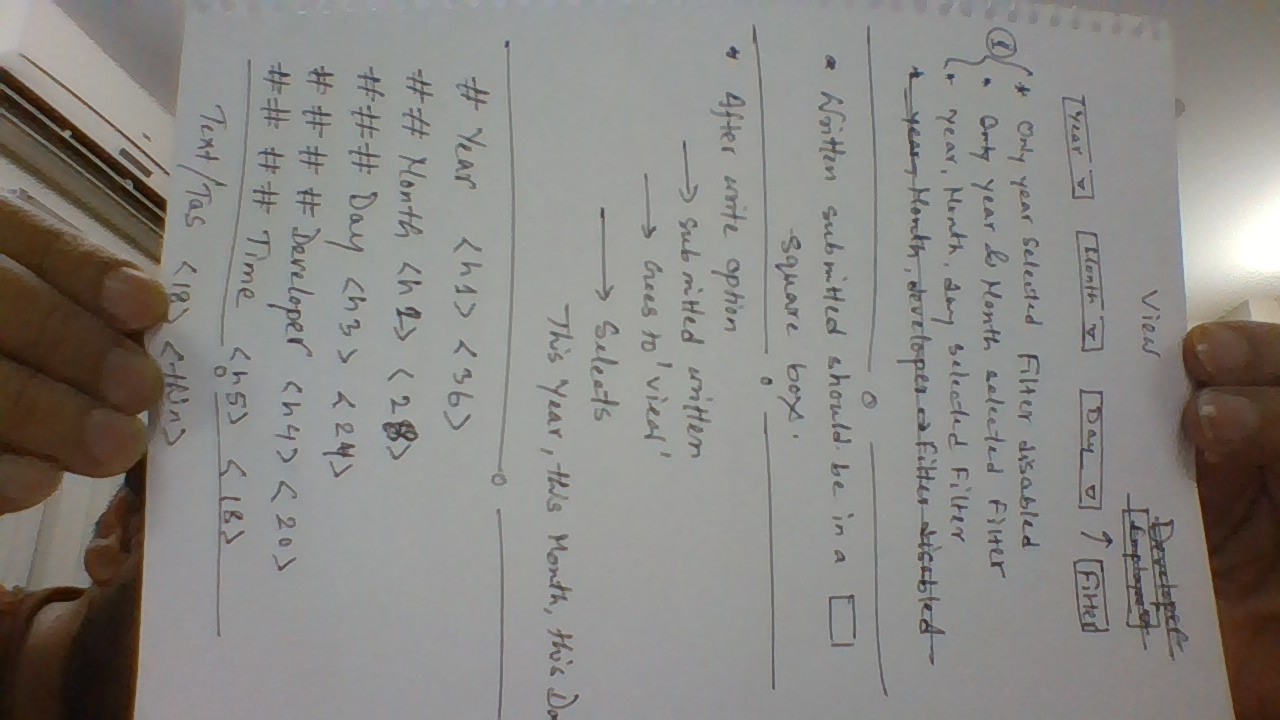 View
Developer
Employee
Year Month Day Filter
① * Only year selected Filter disabled
* Only year & Month selected Filter
* year, Month, day selected Filter
* year, Month, developer Filter disabled
* Written submitted should be in a
square box.
* After write option
→ submitted written
→ Goes to 'view'
→ Selects
This Year, this Month, this Da
# Year <h1> <36>
## Month <h2> <28>
### Day <h3> <24>
#### Developer <h4> <20>
#### Time <h5> <18>
Text/Tas <18> <thin>